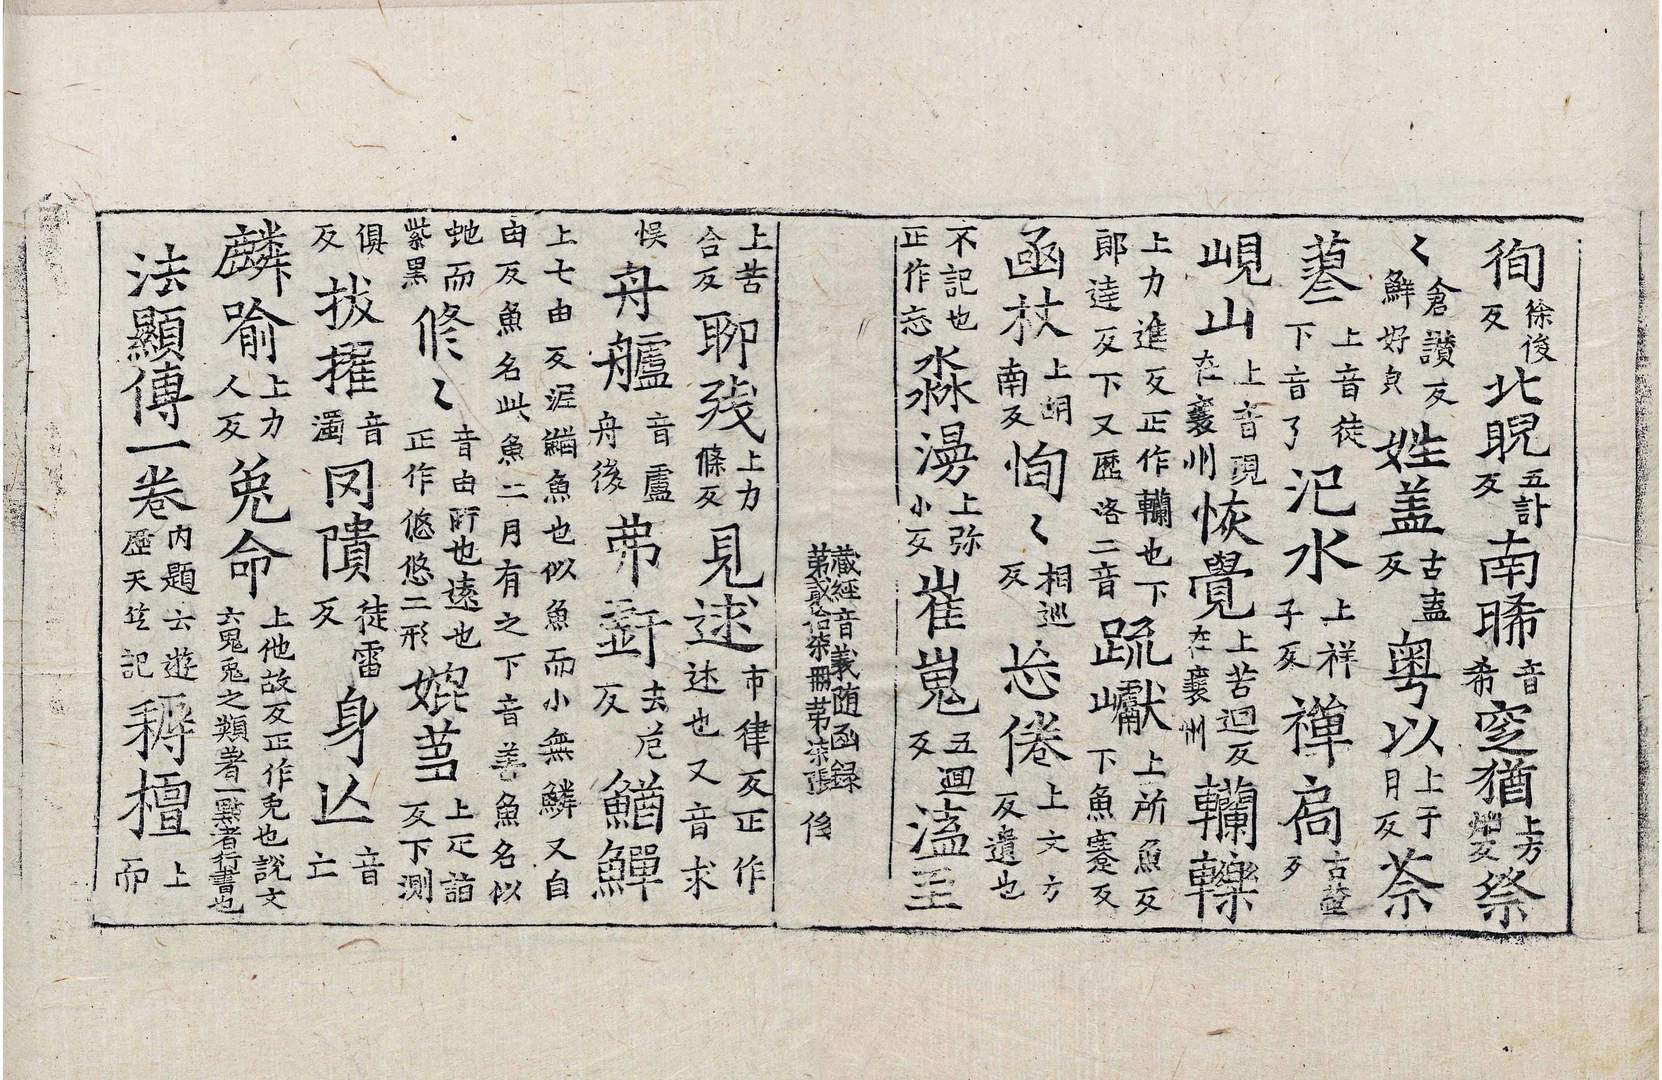 徇徐俊反北睨五計反南晞音希窆猶上方𭉨反祭
〻倉讃反鮮好皃姓盖古盍反粤以上于月反荼
蓼上音徒下音了汜水上祥子反禪扄古螢反
峴山上音現在襄州恢覺上苦迴反在襄州轥轢
上力進反正作轥也下郎逹反下又歷洛二音䟽巘上所魚反下魚蹇反
凾杖上胡南反恂〻相巡反忞倦上文方反遺也
不記也正作忘淼漫上弥小反崔嵬五迴反溘至
藏經音義随函録第貳拾柒冊苐柒張 俊
上苦合反聊殘上力條反見逑市律反正作述也又音求
悮舟艫音盧舟後苐㓰去𡵯反鰌鱓
上七由反泥鰌魚也似魚而小無鱗又自由反魚名此魚二月有之下音善魚名似
虵而紫黒修〻音由所也遠也正作悠悠二形婫莒上疋詣反下測
俱反拔擢音濁冈隤徒雷反身亾音亡
麟喻上力人反兔命上他故反正作兎也說文云𩲡兔之類著一㸃者行書也
法顯傳一卷内題云遊歷天竺記耨檀上而